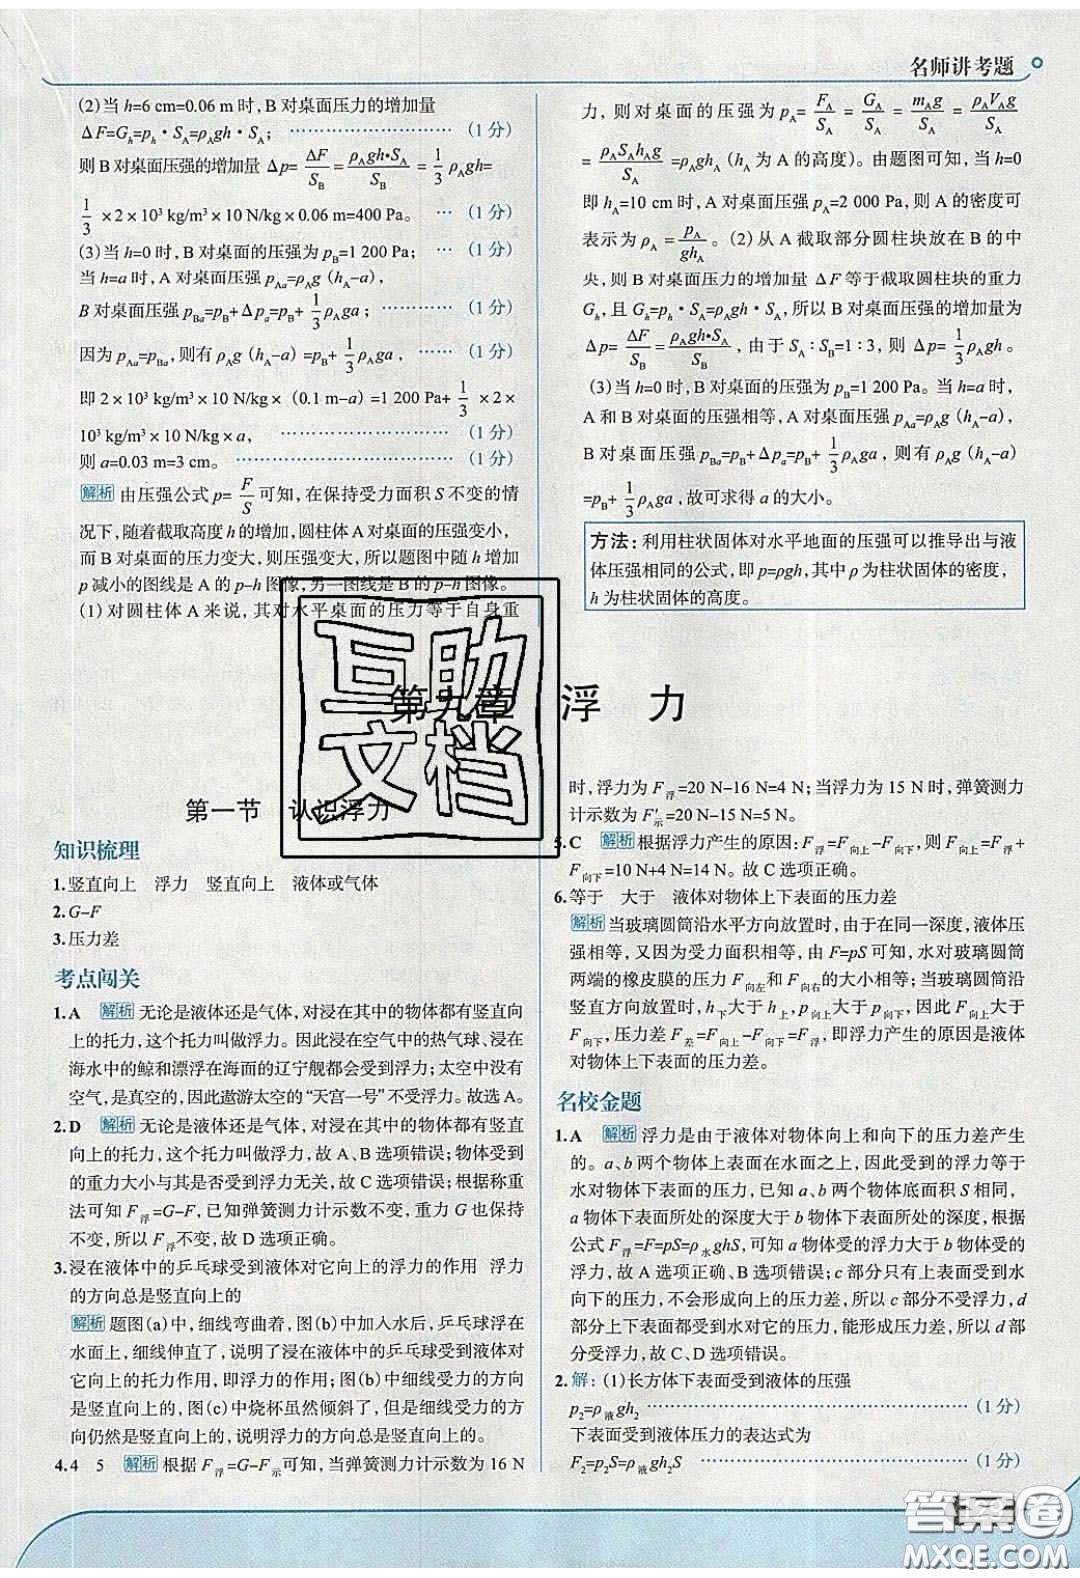 名师讲考题
(2)当 h=6 cm=0.06 m时,B对桌面压力的增加量
ΔF=Gh=ph·SA=ρAgh·SA; ………………………(1分)
则B对桌面压强的增加量 Δp=ΔF/SB=ρAgh·SA/SB=1/3 ρAgh=
1/3 ×2×10³ kg/m³×10 N/kg×0.06 m=400 Pa。 …(1分)
(3)当 h=0时,B对桌面的压强为 pB=1 200 Pa;
当 h=a时,A对桌面压强 pAa=ρAg(hA-a),
B对桌面压强 pBa=pB+Δpa=pB+1/3 ρAga; ……(1分)
因为 pAa=pBa,则有 ρAg(hA-a)=pB+1/3 ρAga, ……(1分)
即2×10³ kg/m³×10 N/kg×(0.1 m-a)=1 200 Pa+1/3 ×2×
10³ kg/m³×10 N/kg×a, ………………………(1分)
则 a=0.03 m=3 cm。 ………………………………(1分)
解析 由压强公式 p=F/S 可知,在保持受力面积S不变的情
况下,随着截取高度h的增加,圆柱体A对桌面的压强变小,
而B对桌面的压力变大,则压强变大,所以题图中随h增加
p减小的图线是A的p-h图像,另一图线是B的p-h图像。
(1)对圆柱体A来说,其对水平桌面的压力等于自身重
力,则对桌面的压强为 pA=FA/SA=GA/SA=mAg/SA=ρAVAg/SA
=ρASAhAg/SA=ρAghA(hA为A的高度)。由题图可知,当h=0
即 hA=10 cm时,A对桌面压强 pA=2 000 Pa,则A的密度可
表示为 ρA=pA/ghA。(2)从A截取部分圆柱块放在B的中
央,则B对桌面压力的增加量 ΔF等于截取圆柱块的重力
Gh,且 Gh=ph·SA=ρAgh·SA,所以B对桌面压强的增加量为
Δp=ΔF/SB=ρAgh·SA/SB,由于 SA:SB=1:3,则 Δp=1/3 ρAgh。
(3)当 h=0时,B对桌面的压强为 pB=1 200 Pa。当h=a时,
A和B对桌面的压强相等,A对桌面压强 pAa=ρAg(hA-a),
B对桌面压强 pBa=pB+Δpa=pB+1/3 ρAga,则有 ρAg(hA-a)
=pB+1/3 ρAga,故可求得a的大小。
方法:利用柱状固体对水平地面的压强可以推导出与液
体压强相同的公式,即p=ρgh,其中ρ为柱状固体的密度,
h为柱状固体的高度。
第九章 浮 力
互助
文档
第一节 认识浮力
知识梳理
1.竖直向上 浮力 竖直向上 液体或气体
2.G-F
3.压力差
考点闯关
1.A 解析 无论是液体还是气体,对浸在其中的物体都有竖直向
上的托力,这个托力叫做浮力。因此浸在空气中的热气球、浸在
海水中的鲸和漂浮在海面的辽宁舰都会受到浮力;太空中没有
空气,是真空的,因此遨游太空的“天宫一号”不受浮力。故选A。
2.D 解析 无论是液体还是气体,对浸在其中的物体都有竖直
向上的托力,这个托力叫做浮力,故A、B选项错误;物体受到
的重力大小与其是否受到浮力无关,故C选项错误;根据称重
法可知 F浮=G-F,已知弹簧测力计示数不变,重力G也保持
不变,所以 F浮不变,故D选项正确。
3.浸在液体中的乒乓球受到液体对它向上的浮力的作用 浮力
的方向总是竖直向上的
解析 题图(a)中,细线弯曲着,图(b)中加入水后,乒乓球浮在
水面上,细线伸直了,说明了浸在液体中的乒乓球受到液体对
它向上的托力作用,即浮力的作用;图(b)中细线受力的方向
是竖直向上的,图(c)中烧杯虽然倾斜了,但细线受力的方
向仍然是竖直向上的,说明浮力的方向总是竖直向上的。
4.4 5 解析 根据 F浮=G-F示可知,当弹簧测力计示数为16 N
时,浮力为 F浮=20 N-16 N=4 N;当浮力为15 N时,弹簧测力
计示数为 F′示=20 N-15 N=5 N。
5.C 解析 根据浮力产生的原因:F浮=F向上-F向下,则 F向上=F浮+
F向下=10 N+4 N=14 N。故C选项正确。
6.等于 大于 液体对物体上下表面的压力差
解析 当玻璃圆筒沿水平方向放置时,由于在同一深度,液体压
强相等,又因为受力面积相等,由 F=pS 可知,水对玻璃圆筒
两端的橡皮膜的压力 F向左和F向右的大小相等;当玻璃圆筒沿
竖直方向放置时,h下大于h上,p向上大于p向下,因此 F向上大于
F向下,压力差 F差=F向上-F向下=F浮,即浮力产生的原因是液体
对物体上下表面的压力差。
名校金题
1.A 解析 浮力是由于液体对物体向上和向下的压力差产生
的。a、b两个物体上表面在水面之上,因此受到的浮力等于
水对物体下表面的压力,已知a、b两个物体底面积S相同,
a物体下表面所处的深度大于b物体下表面所处的深度,根据
公式 F浮=F=pS=ρ水ghS,可知a物体受的浮力大于b物体受的
浮力,故A选项正确、B选项错误;c部分只有上表面受到水
向下的压力,不会形成向上的压力差,所以c部分不受浮力,d
部分上下表面都受到水对它的压力,能形成压力差,所以d部
分受浮力,故C、D选项错误。
2.解:(1)长方体下表面受到液体的压强
p2=ρ液gh2 ………………………………………(1分)
下表面受到液体压力的表达式为
F2=p2S=ρ液gh2S ………………………………(1分)
答案圈
MXQE.COM